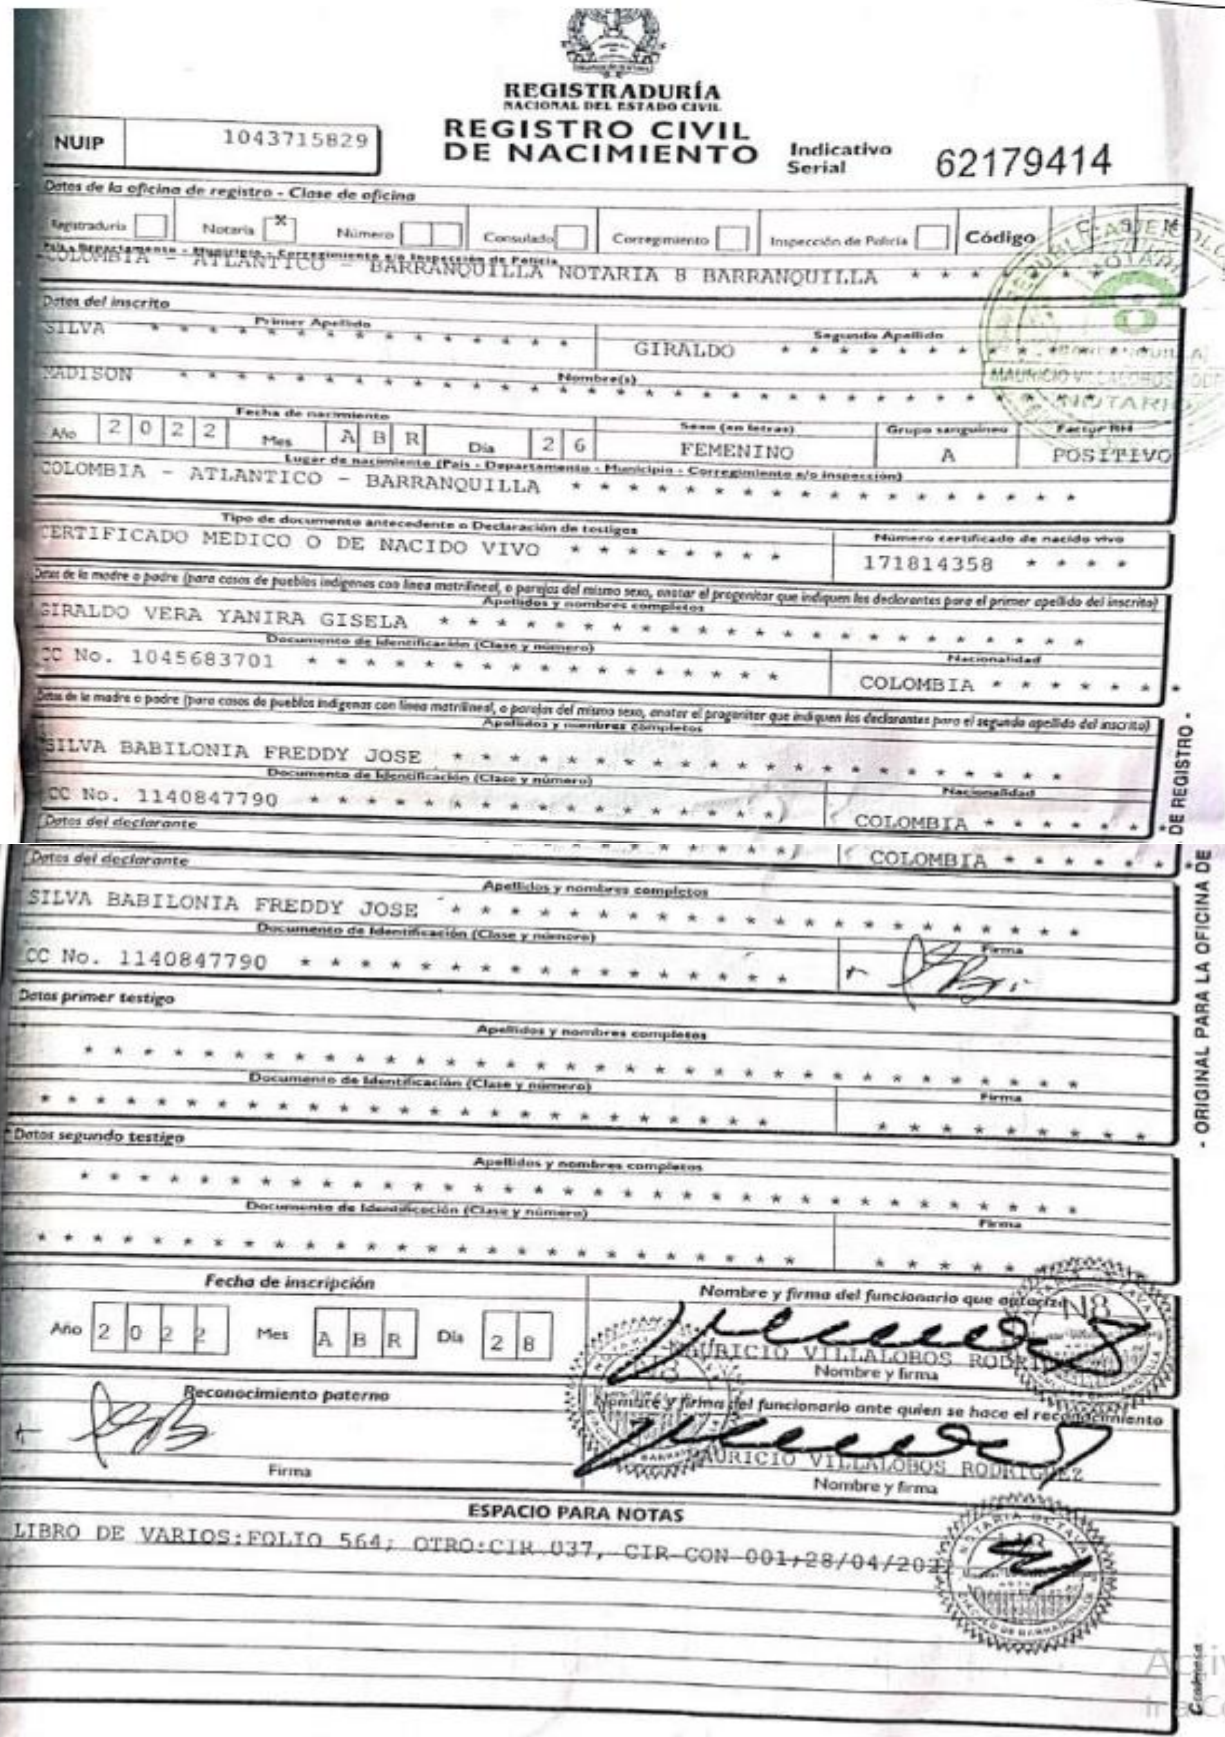 REGISTRADURÍA
NACIONAL DEL ESTADO CIVIL
REGISTRO CIVIL
DE NACIMIENTO
NUIP 1043715829
Indicativo Serial 62179414
Datos de la oficina de registro - Clase de oficina
Registraduría Notaría X Número Consulado Corregimiento Inspección de Policía Código
País - Departamento - Municipio - Corregimiento e/o Inspección de Policía
COLOMBIA - ATLANTICO - BARRANQUILLA NOTARIA 8 BARRANQUILLA * * *
Datos del inscrito
Primer Apellido Segundo Apellido
SILVA * * * * * * * * * * * * GIRALDO * * * * * * *
Nombre(s)
MADISON * * * * * * * * * * * * * * * * * * * *
MAURICIO VILLALOBOS
NOTARIO
Fecha de nacimiento Sexo (en letras) Grupo sanguíneo Factor RH
Año 2022 Mes ABR Día 26 FEMENINO A POSITIVO
Lugar de nacimiento (País - Departamento - Municipio - Corregimiento e/o inspección)
COLOMBIA - ATLANTICO - BARRANQUILLA * * * * * * * * * * * * * * * * * *
Tipo de documento antecedente o Declaración de testigos Número certificado de nacido vivo
CERTIFICADO MEDICO O DE NACIDO VIVO * * * * * * * * 171814358 * * * *
Datos de la madre o padre (para casos de pueblos indígenas con línea matrilineal, o parejas del mismo sexo, anotar el progenitor que indiquen los declarantes para el primer apellido del inscrito)
Apellidos y nombres completos
GIRALDO VERA YANIRA GISELA * * * * * * * * * * * * * * * * * * * * * *
Documento de Identificación (Clase y número) Nacionalidad
CC No. 1045683701 * * * * * * * * * * * * * * * * COLOMBIA * * * * * * *
Datos de la madre o padre (para casos de pueblos indígenas con línea matrilineal, o parejas del mismo sexo, anotar el progenitor que indiquen los declarantes para el segundo apellido del inscrito)
Apellidos y nombres completos
SILVA BABILONIA FREDDY JOSE * * * * * * * * * * * * * * * * * * * * *
Documento de Identificación (Clase y número) Nacionalidad
CC No. 1140847790 * * * * * * * * * * * * * * * * COLOMBIA * * * * * * *
Datos del declarante
COLOMBIA * * * * * *
Datos del declarante
Apellidos y nombres completos
SILVA BABILONIA FREDDY JOSE * * * * * * * * * * * * * * * * * * * * *
Documento de Identificación (Clase y número) Firma
CC No. 1140847790 * * * * * * * * * * * * * * * *
Datos primer testigo
Apellidos y nombres completos
* * * * * * * * * * * * * * * * * * * * * * * * * *
Documento de Identificación (Clase y número) Firma
* * * * * * * * * * * * * * * * * * * * * * * * * * * * * * * * *
Datos segundo testigo
Apellidos y nombres completos
* * * * * * * * * * * * * * * * * * * * * * * * * * * * * * * *
Documento de Identificación (Clase y número) Firma
* * * * * * * * * * * * * * * * * * * * * * * * * * * * * *
Fecha de inscripción Nombre y firma del funcionario que autoriza
Año 2022 Mes ABR Día 28
MAURICIO VILLALOBOS RODRIGUEZ
Nombre y firma
Reconocimiento paterno Nombre y firma del funcionario ante quien se hace el reconocimiento
MAURICIO VILLALOBOS RODRIGUEZ
Firma Nombre y firma
ESPACIO PARA NOTAS
LIBRO DE VARIOS:FOLIO 564; OTRO:CIR 037, CIR CON 001;28/04/202
- ORIGINAL PARA LA OFICINA DE
DE REGISTRO -